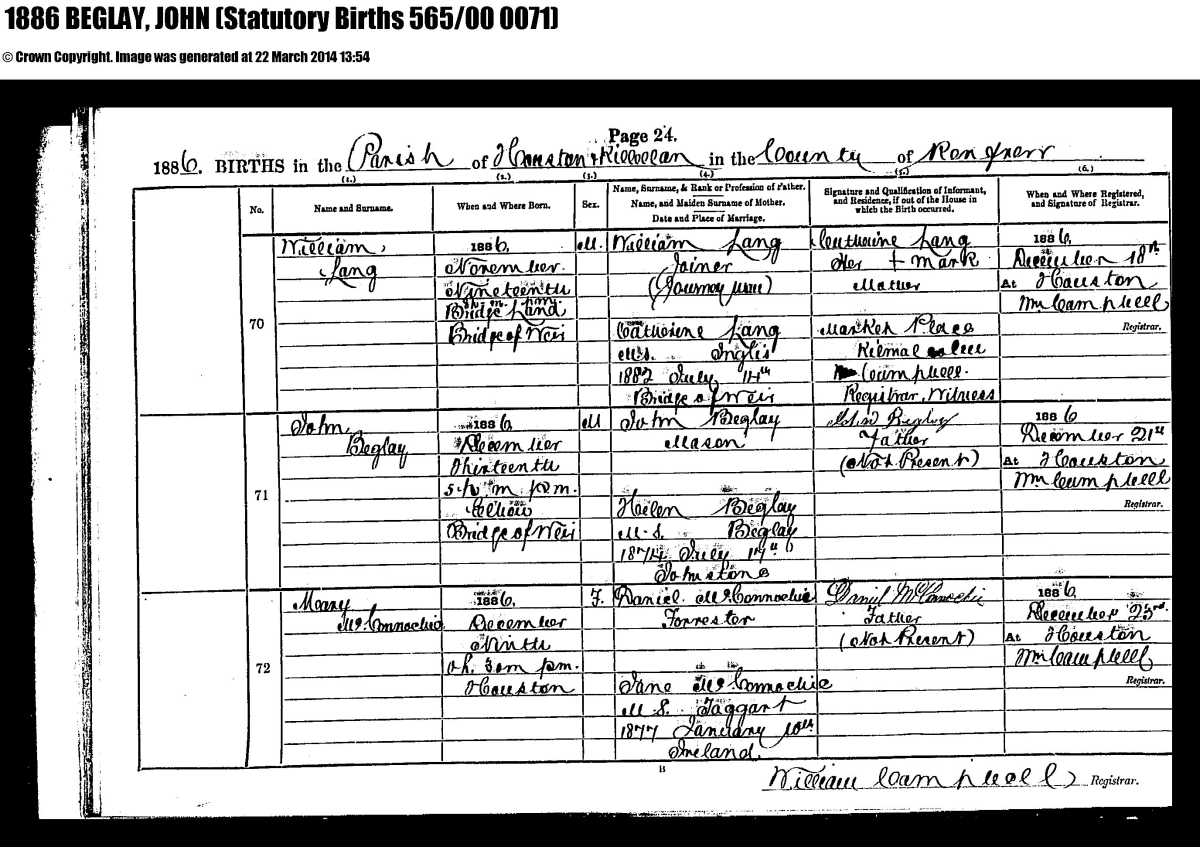 1886 BEGLAY, JOHN (Statutory Births 565/00 0071)
© Crown Copyright. Image was generated at 22 March 2014 13:54
Page 24.
1886. BIRTHS in the Parish of Houston & Killellan in the County of Renfrew
(1.) (2.) (3.) (4.) (5.) (6.)
No.
Name and Surname.
When and Where Born.
Sex.
Name, Surname, & Rank or Profession of Father.
Name, and Maiden Surname of Mother.
Date and Place of Marriage.
Signature and Qualification of Informant,
and Residence, if out of the House in
which the Birth occurred.
When and Where Registered,
and Signature of Registrar.
70
William
Lang
1886,
November
Nineteenth
pm.
Bridge Land
Bridge of Weir
M.
William Lang
Joiner
(Journeyman)
Catherine Lang
M.S. Inglis
1882 July 14th
Bridge of Weir
Catherine Lang
Her + mark
Mother
Market Place
Kilmalcolm
Campbell.
Registrar, Witness
1886,
December 18th
At Houston
Wm Campbell
Registrar.
71
John
Beglay
1886
December
Thirteenth
m p.m.
Bridge of Weir
M
John Beglay
Mason
Helen Beglay
M.S. Beglay
1874 July 17th
Johnstone
John Beglay
Father
(Not Present)
1886
December 21st
At Houston
Wm Campbell
Registrar.
72
Mary
McConnochie
1886,
December
Ninth
h. 30m pm.
Houston
F.
Daniel McConnochie
Forrester
Jane McConnochie
M.S. Taggart
1877 January 10th
Ireland.
Daniel McConochie
Father
(Not Present)
1886
December 23rd
At Houston
Wm Campbell
Registrar.
B
William Campbell Registrar.